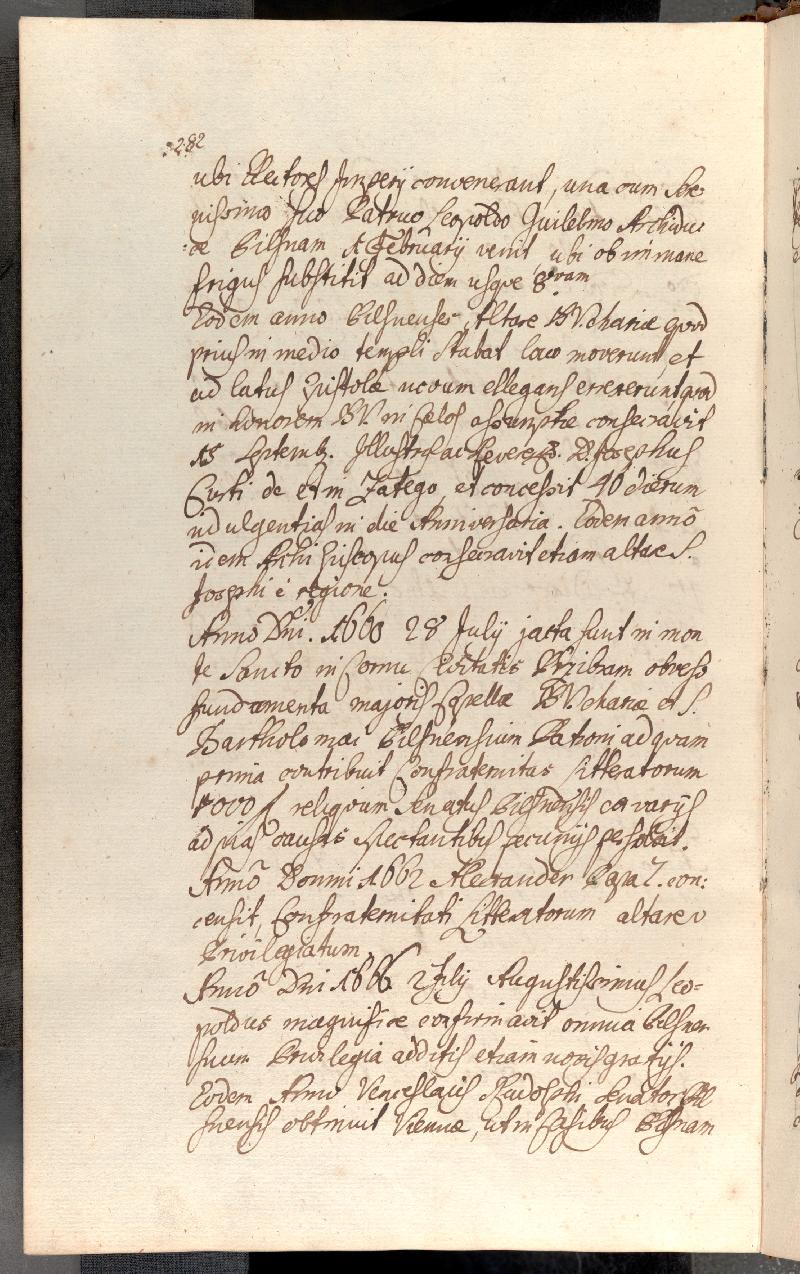 282
ubi Electores Imperij convenerant, una cum Sere
nissimo suo Patruo Leopoldo Guilelmo Archiduc
ce Pilsnam 1 February venit, ubi ob immane
frigus substitit ad diem usque 8vam
Eodem anno Pilsnenses Altare BV Mariæ quod
prius in medio templi stabat loco moverunt, et
ad latus Epistolæ novum ellegans errexerunt quod
in honorem BV in Cælos assumptæ consecravit
15 Septemb. Illustris ac Reveren. D. Josephus
Corti de et in Zatego, et concessit 40 dierum
indulgentias in die Anniversaria. Eodem anno
idem Archi Episcopus consecravit etiam altare S.
Josephi è regione.
Anno Dni. 1660 28 July jacta sunt in mon
te Sancto in Cornu Civitatis Przibram obverso
fundamenta majoris Capellæ BV Mariæ et S.
Bartholomæi Pilsnensium Patroni ad quam
prima contribuit Confraternitas Litteratorum
1000 f religvum Senatus Pilsnensis ex varijs
ad pias causas spectantibus pecunijs persolvit.
Anno Domini 1662 Alexander Papa 7. con:
censit, Confraternitati Litteratorum altare
Privilegiatum.
Anno Dni 1666 2 July Augustissimus Leo-
poldus magnifice confirmavit omnia Pilsnen
sium Privilegia additis etiam novis gratijs.
Eodem Anno Venceslaus Rudolphi Senator Pil
snensis obtinuit Viennæ, ut in Casibus Pilsnam